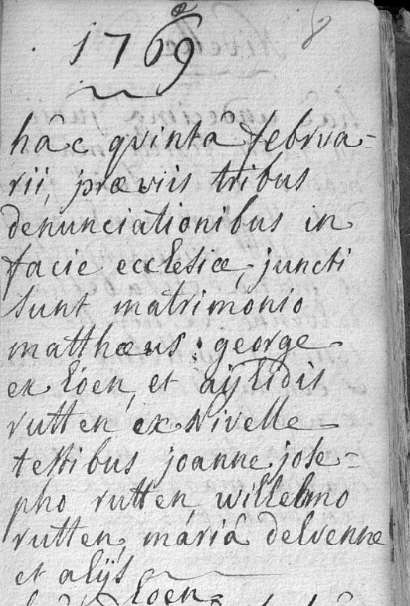 1769
hâc qvinta februa-
rii, præviis tribus
denunciationibus in
facie ecclesiæ, juncti
sunt matrimonio
matthæus : george
ex Eben, et aÿlidis
rutten ex Nivelle
testibus joanne jose-
pho rutten willelmo
rutten, mária delvenne
et alÿs